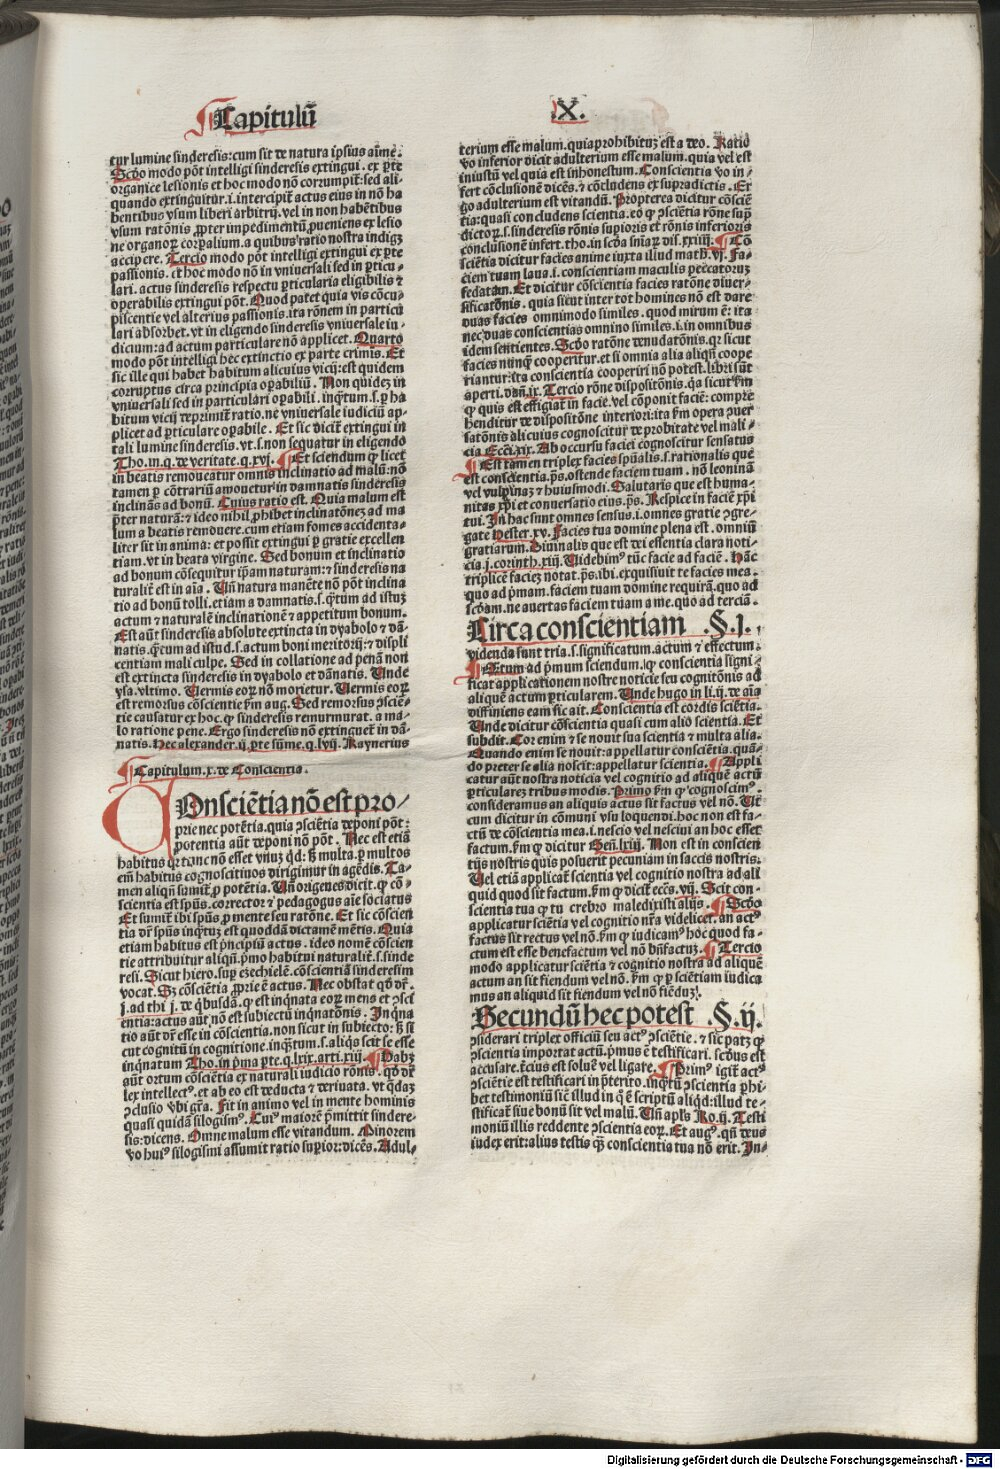 Capitulū
.X.
tur lumine sinderesis: cum sit de natura ipsius aīme.
Scđo modo pōt intelligi sinderesis extingui. ex ꝑte
organice lesionis et hoc modo nō corrumpit̄: sed ali-
quando extinguitur .i. intercipit̄ actus eius in nō ha
bentibus vsum liberi arbitrij. vel in non habētibus
vsum ratōnis ꝓpter impedimentū ꝓueniens ex lesio
ne organoꝝ corꝑalium. a quibus ratio nostra indigꝫ
accipere. Tercio modo pōt intelligi extingui ex ꝑte
passionis. et hoc modo nō in vniuersali sed in ꝑticu-
lari. actus sinderesis respectu ꝑticularia eligibilis ⁊
operabilis extingui pōt. Quod patet quia vis cōcu-
piscentie vel alterius passionis. ita rōnem in particu
lari absorbet. vt in eligendo sinderesis vniuersale iu-
dicum: ad actum particulare nō applicet. Quarto
modo pōt intelligi hec extinctio ex parte crimis. Et
sic ille qui habet habitum alicuius vicij: est quidem
corruptus circa principia oꝑabiliū. Non quidez in
vniuersali sed in particulari oꝑabili. inqꝫtum .s. ꝑ ha
bitum vicij deprimit̄ ratio. ne vniuersale iudiciū ap-
plicet ad ꝑticulare oꝑabile. Et sic dicit̄ extingui in
tali lumine sinderesis. vt .s. non sequatur in eligendo
Tho. in. q. de veritate. q. xvj. Et sciendum ꝙ licet
in beatis remoueatur omnis inclinatio ad malū: nō
tamen ꝑ cōtrariū amouetur in damnatis sinderesis
inclinās ad bonū. Cuius ratio est. Quia malum est
p̄ter naturā: ⁊ ideo nihil ꝓhibet inclinatōnez ad ma
lum a beatis remouere. cum etiam fomes accidenta-
liter sit in anima: et possit extingui ꝑ gratie excellen
tiam. vt in beata virgine. Sed bonum et inclinatio
ad bonum cōsequitur ip̄am naturam: ⁊ sinderesis na
turalit̄ est in aīa. Vn̄ natura manēte nō pōt inclina
tio ad bonū tolli. etiam a damnatis. s. qꝫtum ad istuz
actum ⁊ naturalē inclinationē ⁊ appetitum bonum.
Est aūt sinderesis absolute extincta in dyabolo ⁊ dā-
natis. qꝫcum ad istud .s. actum boni meritorij: ⁊ displi
centiam mali culpe. Sed in collatione ad penā non
est extincta sinderesis in dyabolo et dānatis. Unde
ysa. vltimo. Uermis eoꝝ nō morietur. Uermis eoꝝ
est remorsus cōscientie ẜm aug. Sed remorsus ꝯsciē-
tie causatur ex hoc. ꝙ sinderesis remurmurat. a ma-
lo ratione pene. Ergo sinderesis nō extinguet̄ in dā-
natis. Hec alexander. ij. ꝑte sūme. q. lvij. Raynerius
Capitulum .x. de Conscientia.
COnsciētia nō est pro-
prie nec potētia. quia ꝯsciētia deponi pōt:
potentia aūt deponi nō pōt. Nec est etiā
habitus qꝛ tunc nō esset vnuz qd: sꝫ multa. ꝑ multos
em̄ habitus cognoscitiuos dirigimur in agēdis. Ta-
men aliqn̄ sumit̄ ꝑ potētia. Vn̄ origenes dicit. ꝙ cō-
scientia est spūs. corrector ⁊ pedagogus aīe sociatus
Et sumit̄ ibi spūs ꝑ mente seu ratōne. Et sic cōscien
tia dr̄ spūs inqꝫtuz est quoddā dictamē mētis. Quia
etiam habitus est pncipiū actus. ideo nomē cōscien
tie attribuitur aliqn̄. pmo habitui naturalit̄. s. sinde
resi. Sicut hiero. suꝑ ezechielē. cōscientiā sinderesim
vocat. Sꝫ cōsciētia ꝓprie ē actus. Nec obstat qđ dr̄.
j. ad thi j. de qbusdā. ꝙ est inqnata eoꝝ mens et ꝯsci
entia: actus aūt nō est subiectū inqnatōnis. Inqna
tio aūt dr̄ esse in cōscientia. non sicut in subiecto: sꝫ si
cut cognitū in cognitione. inqꝫtum. s. aliqs scit se esse
inqnatum Tho. in pma ꝑte. q. lxix. arti. xiij. Habꝫ
aūt ortum cōsciētia ex naturali iudicio rōnis. qđ dr̄
lex intellectꝰ. et ab eo est deducta ⁊ deriuata. vt qdaz
ꝯclusio vbi gra. Fit in animo vel in mente hominis
quasi quidā silogismꝰ. Cuiꝰ maiorē pmittit sindere-
sis: dicens. Omne malum esse vitandum. Minorem
vo huiꝰ silogismi assumit ratio suꝑior: dicēs. Adul-
terium esse malum. quia prohibituz est a deo. Ratio
vo inferior dicit adulterium esse malum. quia vel est
iniustū vel quia est inhonestum. Conscientia vo in-
fert cōclusionē dicēs. ⁊ cōcludens ex supradictis. Er
go adulterium est vitandū. Propterea dicitur cōsciē
tia: quasi concludens scientia. eo ꝙ ꝯsciētia rōne suꝑ
dictoꝝ. s. sinderesis rōnis suꝑioris et rōnis inferioris
conclusionē infert. tho. in scđa sniaꝝ dis. xxiiij. Cō
sciētia dicitur facies anime iuxta illud math. vj. Fa-
ciem tuam laua. i. conscientiam maculis peccatoruz
fedatam. Et dicitur cōscientia facies ratōne diuer-
sificatōnis. quia sicut inter tot homines nō est dare
duas facies omnimodo similes. quod mirum ē: ita
nec duas conscientias omnino similes. i. in omnibus
idem sentientes. Scđo ratōne denudatōnis. qꝛ sicut
facies nunqꝫ cooperitur. et si omnia alia aliqn̄ coope
riantur: ita conscientia cooperiri nō potest. libri sūt
aperti. dan̄. ix. Tercio rōne dispositōnis. qa sicut ẜm
ꝙ quis est effigiat̄ in facie. vel cōponit faciē: compre
henditur de dispositōne interiori: ita ẜm opera ꝯuer
satōnis alicuius cognoscitur de probitate vel mali-
cia Ecci. xix. Ab occursu faciei cognoscitur sensatus
Est tamen triplex facies spūalis. s. rationalis que
est conscientia. ps. ostende faciem tuam. nō leoninā
vel vulpinaz ⁊ huiusmodi. Salutaris que est huma-
nitas xp̄i et conuersatio eius. ps. Respice in faciē xp̄i
tui. In hac sunt omnes sensus. i. omnes gratie ꝯgre-
gate Hester. xv. Facies tua domine plena est. omniū
gratiarum. Diuinalis que est dei essentia clara noti-
cia. j. corinth. xiij. Uidebimꝰ tūc facie ad faciē. Hāc
triplicē faciez notat. ps. ibi. exquisiuit te facies mea.
quo ad pmam. faciem tuam domine requirā. quo ad
scđam. ne auertas faciem tuam a me. quo ad terciā.
Circa conscientiam .§. j.
videnda sunt tria. s. significatum. actum ⁊ effectum.
Etum ad pmum sciendum. ꝙ conscientia signi-
ficat applicationem nostre noticie seu cognitōnis ad
aliquē actum ꝑticularem. Unde hugo in li. ij. de aīa
diffiniens eam sic ait. Conscientia est cordis sciētia.
Unde dicitur cōscientia quasi cum alio scientia. Et
subdit. Cor enim ⁊ se nouit sua scientia ⁊ multa alia.
Quando enim se nouit: appellatur conscientia. quā-
do preter se alia noscit: appellatur scientia. Appli
catur aūt nostra noticia vel cognitio ad aliquē actū
ꝑticularez tribus modis. Primo ẜm ꝙ cognoscimꝰ.
consideramus an aliquis actus sit factus vel nō. Ut
cum dicitur in comūni vsu loquendi. hoc non est fa-
ctū de cōscientia mea. i. nescio vel nesciui an hoc esset
factum. ẜm ꝙ dicitur Gen̄. lxiij. Non est in conscien
tijs nostris quis posuerit pecuniam in saccis nostris.
Uel etiā applicat̄ scientia vel cognitio nostra ad ali
quid quod sit factum. ẜm ꝙ dicit̄ eccs. vij. Scit con-
scientia tua ꝙ tu crebro maledixisti alijs. Scđo
applicatur sciētia vel cognitio nr̄a videlicet. an actꝰ
factus sit rectus vel nō. ẜm ꝙ iudicamꝰ hoc quod fa-
ctum est esse benefactum vel nō bn̄factuz. Tercio
modo applicatur sciētia ⁊ cognitio nostra ad aliquē
actum an sit fiendum vel nō. ẜm ꝙ ꝑ sciētiam iudica
mus an aliquid sit fiendum vel nō fiēduz.
Secundū hec potest .§. ij.
ꝯsiderari triplex officiū seu actꝰ ꝯsciētie. ⁊ sic patꝫ ꝙ
ꝯscientia importat actū. pmus ē testificari. scđus est
accusare. tcius est soluē vel ligare. Primꝰ igit̄ actꝰ
ꝯsciētie est testificari in pterito. inqꝫtū ꝯscientia ꝑhi-
bet testimoniū sic illud in q̄ ē scriptū aliqd: illud te-
stificat̄ siue bonū sit vel malū. Vn̄ apls Ro. ij. Testi
moniū illis reddente ꝯscientia eoꝝ. Et augꝰ. qn̄ deus
iudex erit: alius testis qꝫ conscientia tua nō erit. In-
Digitalisierung gefördert durch die Deutsche Forschungsgemeinschaft - DFG